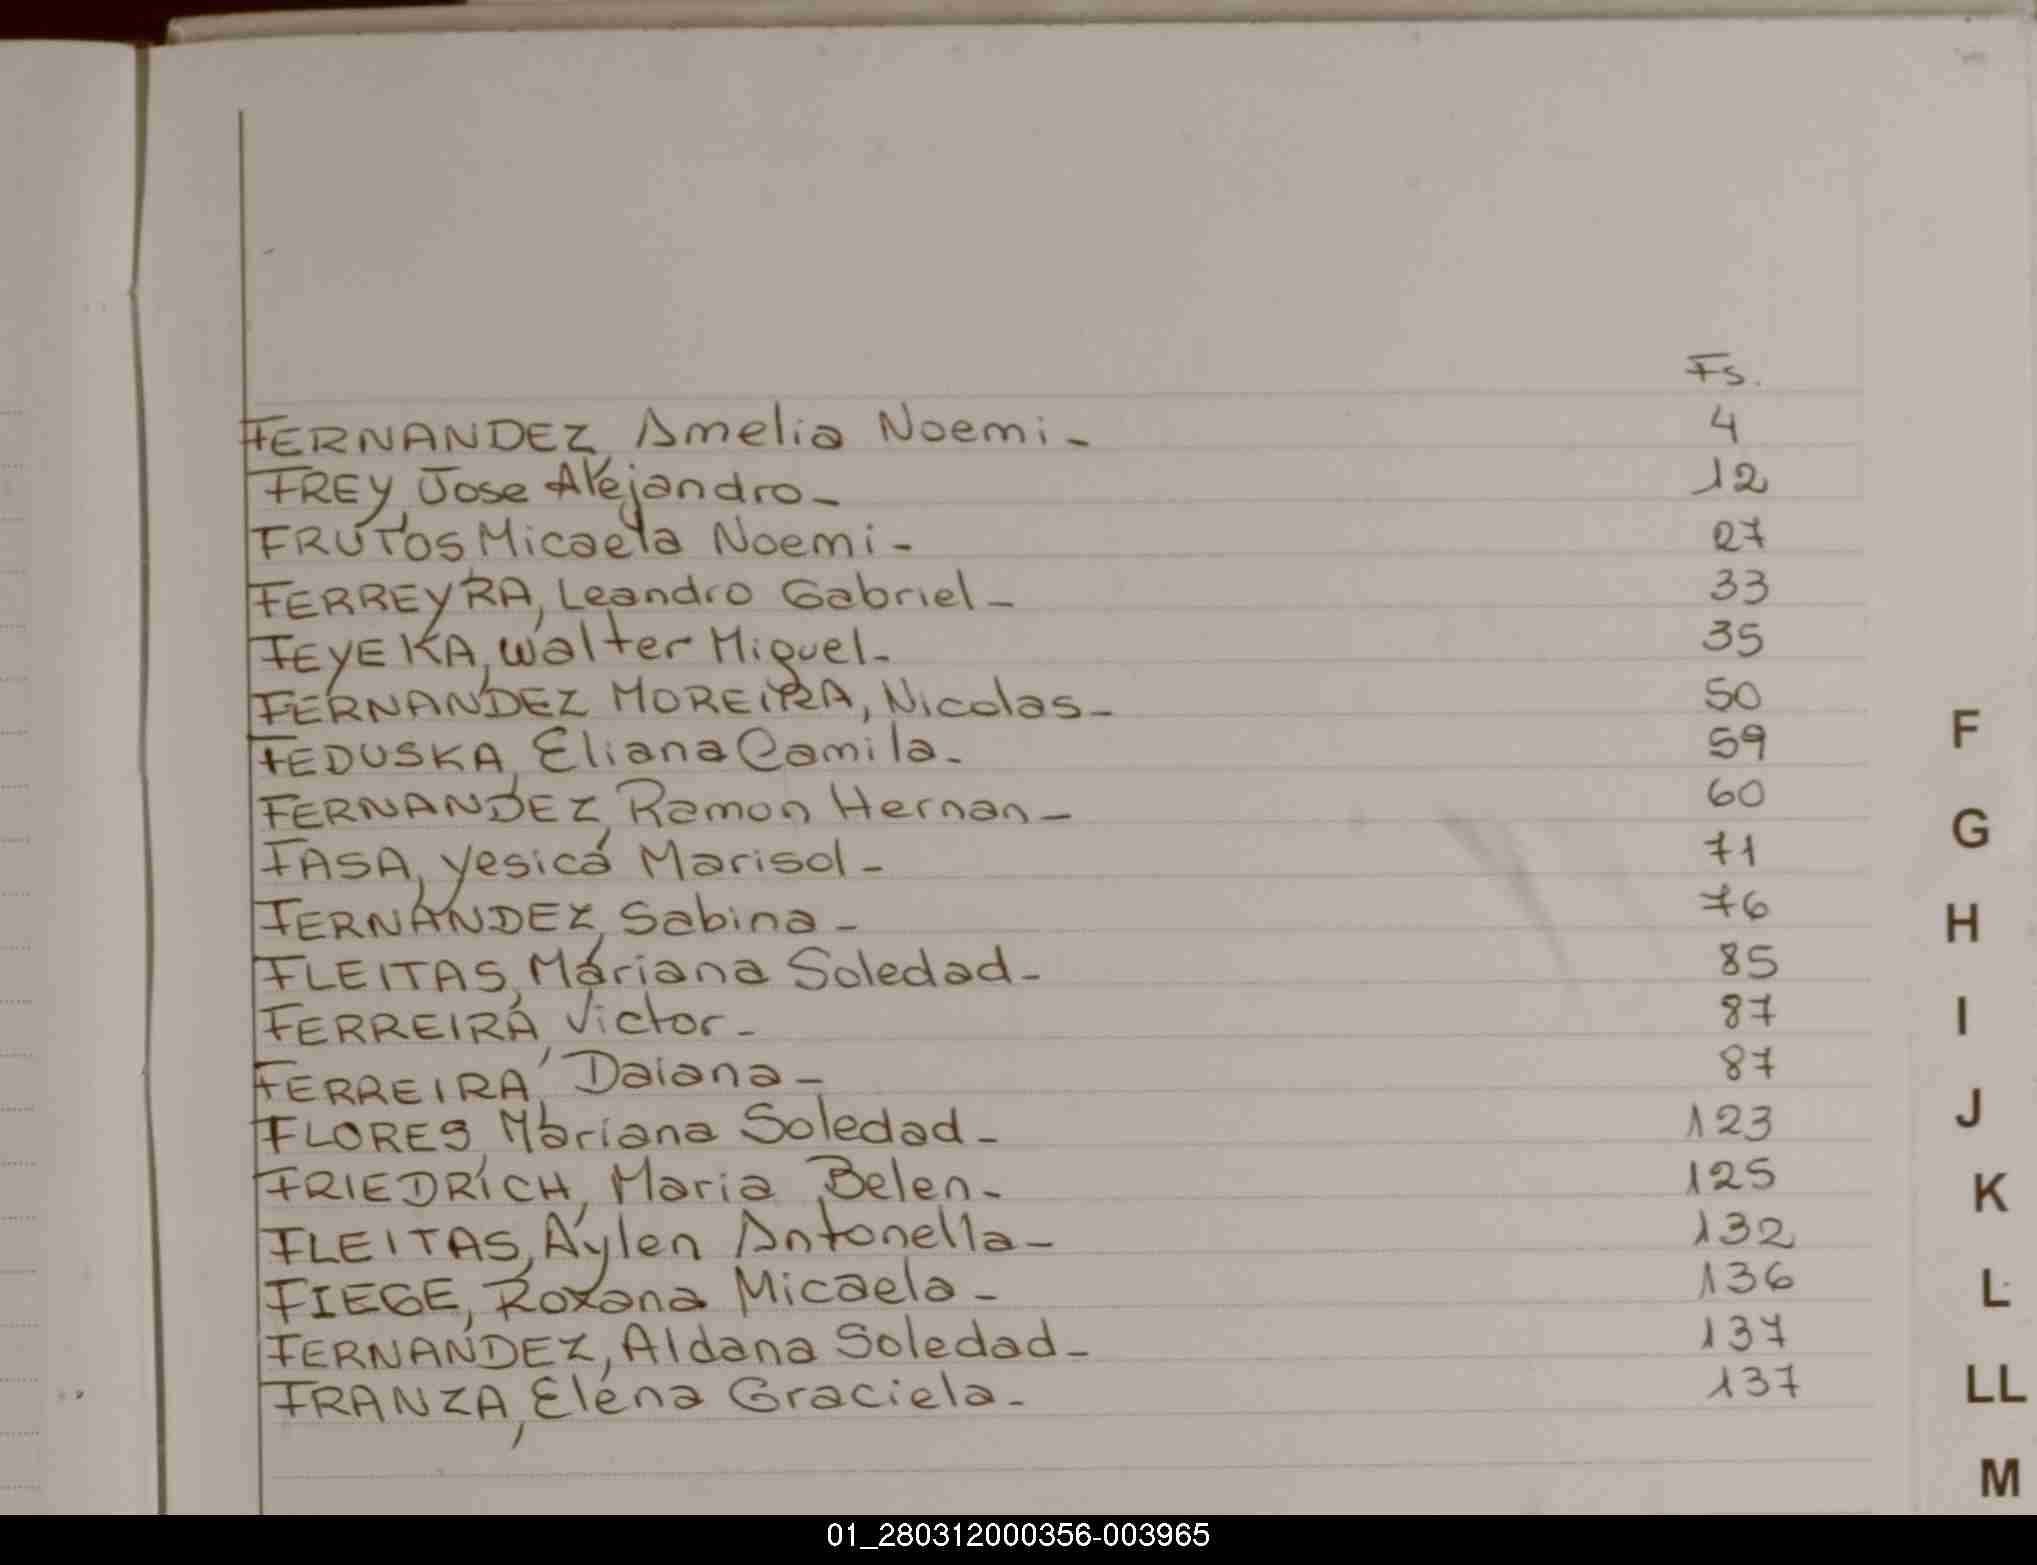 Fs.
FERNANDEZ, Amelia Noemi - 4
FREY, Jose Alejandro - 12
FRUTOS Micaela Noemi - 27
FERREYRA, Leandro Gabriel - 33
FEYEKA, Walter Miguel - 35
FERNANDEZ MOREIRA, Nicolas - 50
FEDUSKA, Eliana Camila - 59
FERNANDEZ, Ramon Hernan - 60
FASA, Yesica Marisol - 71
FERNANDEZ, Sabina - 76
FLEITAS, Mariana Soledad - 85
FERREIRA, Victor - 87
FERREIRA, Daiana - 87
FLORES, Mariana Soledad - 123
FRIEDRICH, Maria Belen - 125
FLEITAS, Aylen Antonella - 132
FIEGE, Roxana Micaela - 136
FERNANDEZ, Aldana Soledad - 137
FRANZA, Elena Graciela - 137
F
G
H
I
J
K
L
LL
M
01_280312000356-003965